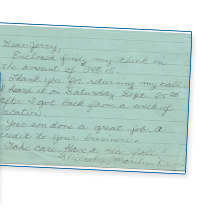 Dear Jerry,
Enclosed find my check in
the amount of 348.15.
Thank you for returning my call.
I heard it on Saturday Sept. 25th
after I got back from a week of
vacation.
Your son done a great job, a
credit to your business.
Take care. Have a nice
Sincerely, Marilyn